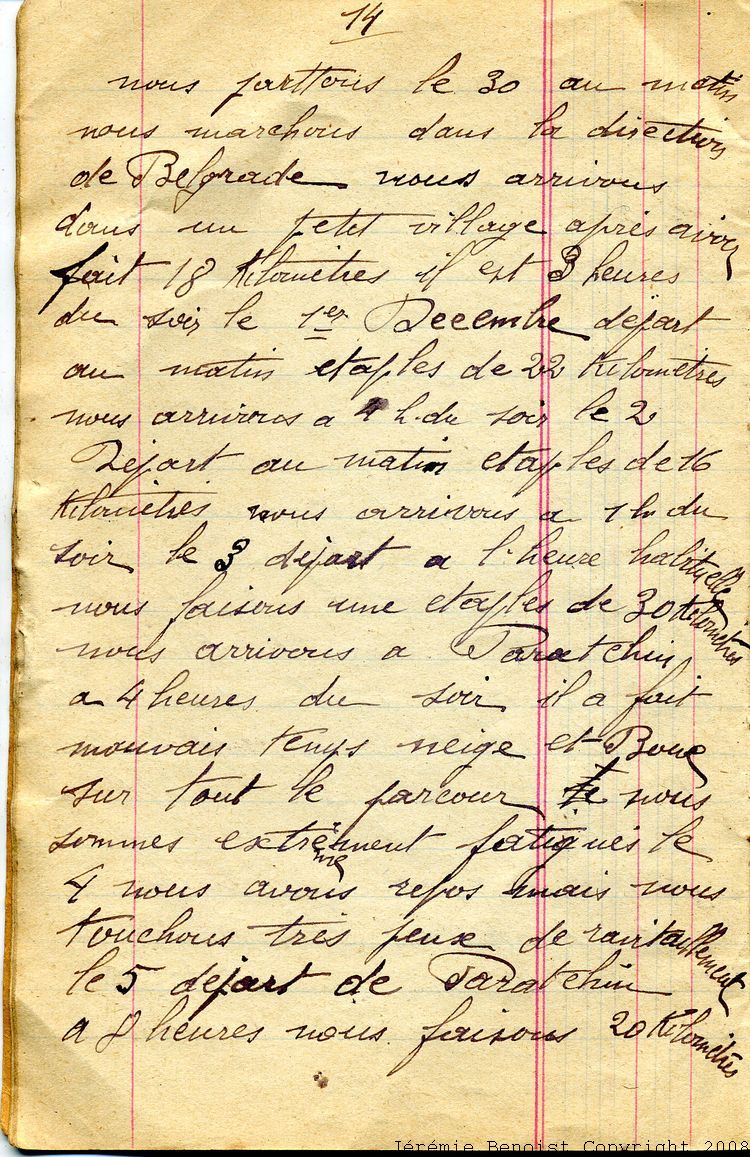 14
nous parttons le 30 au matin
nous marchons dans la direction
de Belgrade nous arrivons
dans un petit village après avoir
fait 18 Kilomètres il est 3 heures
du soir le 1er Decembre départ
au matin etaples de 22 Kilometres
nous arrivons a 4 h. du soir le 2
Départ au matin etaples de 16
Kilomètres nous arrivons a 1 h du
soir le 3 départ a l'heure habituelle
nous faisons une etaples de 30 Kilomètres
nous arrivons a Paratchin
a 4 heures du soir il a fait
mauvais temps neige et Boue
sur tout le parcour nous
sommes extrêmement fatigués le
4 nous avons repos mais nous
touchons très peux de ravitaillement
le 5 départ de Paratchin
a 8 heures nous faisons 20 Kilomètres
Jérémie Benoist Copyright 2008